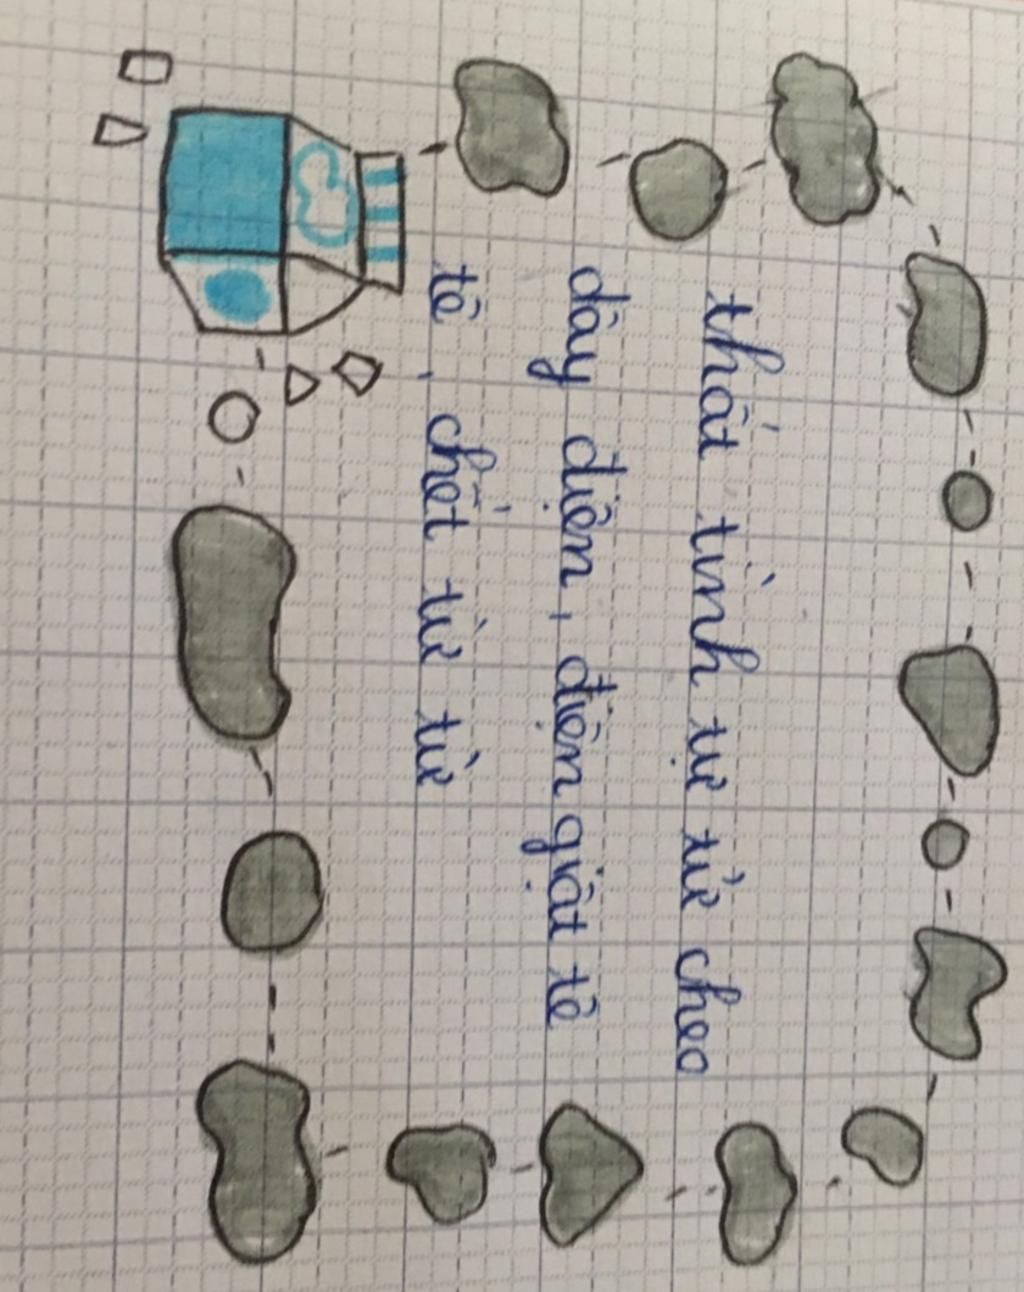 thất tình tự tử cheo
dây điện, điện giật tê
tê, chết từ từ